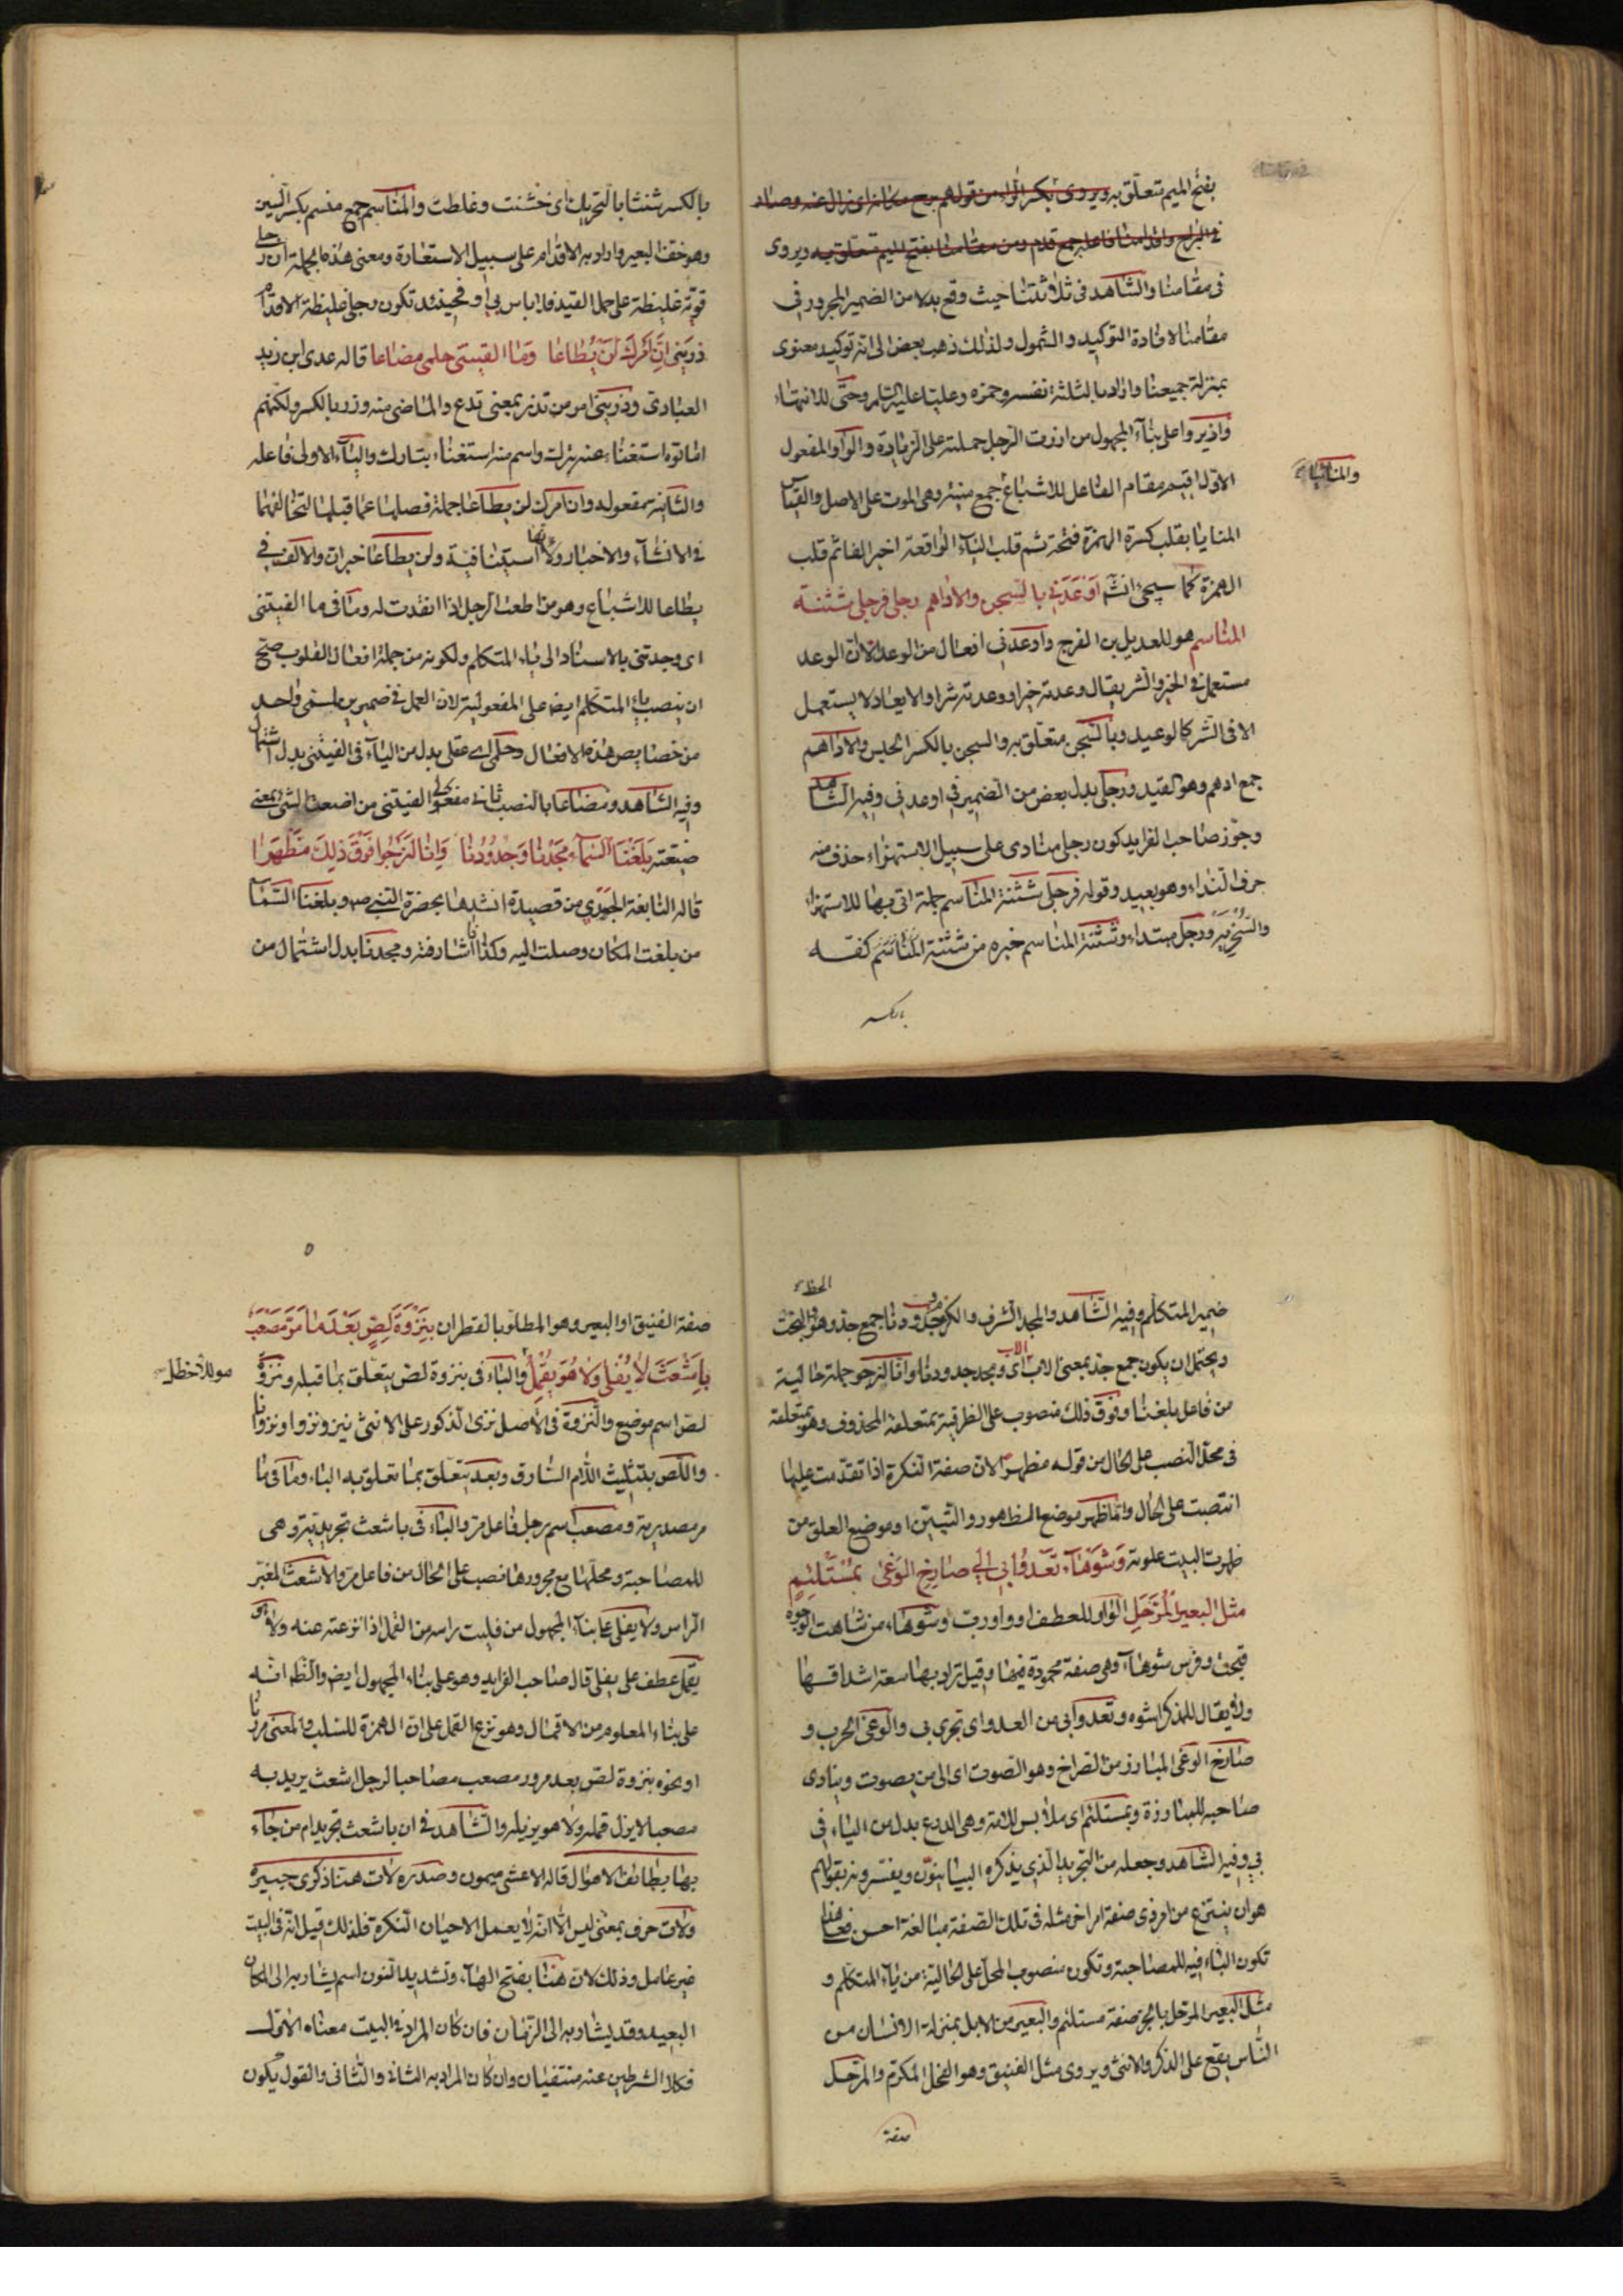 بفتح الميم متعلّق به ويروى بكسر الراء من قولهم برح مكانه اى زال عنه وصار
فى البراح واقدامنا فاعله جمع قدم ومن مقامنا بفتح الميم متعلّق به ويروى
فى مقامنا والشاهد فى ثلاثتنا حيث وقع بدلا من الضمير المجرور فى
مقامنا لافادة التوكيد والشمول ولذلك ذهب بعض الى انه توكيد معنوى
بمنزلة جميعنا واراد بالثلثة نفسه وحمزه وعليّا عليه السّلم وحتّى للانتهاء
وازيروا على بناء المجهول من ازرت الرجل حملته على الزيارة والواو المفعول
الاوّل اقيم مقام الفاعل للاشباع جمع منية وهى الموت على الاصل والقياس
والمنائيا
المنايا بقلب كسرة الهمزة فتحة ثم قلب الياء الواقعة اخير الفا ثم قلب
الهمزة كما سيجئ انشم اَوْعَدَنِي بالسّجن والاداهم رجلى فرجلى شثنة
المناسم هو للعديل بن الفرج واوعدنى افعال من الوعد الّا ان الوعد
مستعمل فى الخير والشر يقال وعدته خيرا ووعدته شرا والايعاد لا يستعمل
الا فى الشر كالوعيد وبالسّجن متعلّق به والسجن بالكسر الحبس والاداهم
جمع ادهم وهو القيد ورجلى بدل بعض من الضمير فى اوعدنى وفيه الشّاهد
وجوّز صاحب الفرايد كون رجلى منادى على سبيل الاستهزاء حذف منه
حرف النّداء وهو بعيد وقوله فرجلى شثنة المناسم جملة اتى بها للاستهزاء
والسُّخْرِيَةِ ورجلى مبتداء وشثنة المناسم خبره من شثنة المناسم كفّه
بالكسر
بالكسر شثنا بالتحريك اى خشنت وغلظت والمناسم جمع منسم بكسر السّين
وهو خفّ البعير واراد به الاقدام على سبيل الاستعارة ومعنى هذه الجملة ان رجلى
قوية غليظة على حمل القيد فلا باس بى او فحينئذ تكون رجلى غليظة الاقدام
ذريني انّ امرك لن يُطاعا وَمَا الفيتنى حلمى مضاعا قاله عدى ابن زيد
العبادى وذرينى امر من تذر بمعنى تدع والماضى منه وزر بالكسر ولكنهم
اماتوه استغناء عنه بترك واسم منه استغناء بتارك والياء الاولى فاعله
والثانية مفعوله وان امرك لن يطاعا جملة فصلها عما قبلها لتخالفهما
فى الانشاء والاخبار ولانّها استينافية ولن يطاعا خبر ان والالف فى
يطاعا للاشباع وهو من اطعت الرجل اذا انقدت له وما فى ما الفيتنى
اى وجدتنى بالاسناد الى ياء المتكلم ولكونه من جملة افعال القلوب صحّ
ان ينصب ياء المتكلم ايضا على المفعولية لان العمل فى ضميرين لمسمّى واحد
من خصايص هذه الافعال وحلمى اى عقلى بدل من الياء فى الفيتنى بدل اشتمال
وفيه الشاهد ومضاعا بالنصب ثانى مفعولى الفيتنى من اضعت الشئ بمعنى
ضيّعته بَلَغْنَا السّماءَ مَجْدُنَا وَجُدُودُنَا وَاِنّا لَنَرْجُوا فَوْقَ ذَلِكَ مَظْهَرا
قاله النابغة الجعدى من قصيدة انشدها بحضرة النّبى صم وبلغنا السّماء
من بلغت المكان وصلت اليه وكذا اذا شارفته ومجدنا بدل اشتمال من
ضمير المتكلم وفيه الشّاهد والمجد الشرف والكرم وجدودنا جمع جد وهو البخت
الحظ
ويحتمل ان يكون جمع جدّ بمعنى الاب اى ومجد جدودنا وانا لنرجو جملة حالية
من فاعل بلغنا وفوق ذلك منصوب على الظرفية بمتعلقه المحذوف وهو بمتعلقه
فى محلّ النصب على الحال من قوله مظهرا لان صفة النكرة اذا تقدّمت عليها
انتصبت على الحال وامّا مظهر موضع الظهور والتبيين او موضع العلوّ من
ظهرت البيت علوته وَشَوْهَاءَ تَعْدُوا بِي اِلَى صارِخِ الوَغى بِمُسْتَلْئِمٍ
مثل البعير المُرَحَّلِ الواو للعطف او واو ربّ وشوهاء من شاهت الوجوه
قبحت وفرس شوهاء وهى صفة محمودة فيها وقيل يراد بها سعة اشداقها
ولا يقال للمذكر اشوه وتعدوا بى من العدو اى تجرى بى والوغى الحرب و
صارخ الوغى المبارز من الصراخ وهو الصوت اى الى من يصوت وينادى
صاحبه للمبارزة وبمستلئم اى ملابس للامة وهى الدرع بدل من الياء فى
بى وفيه الشاهد وجعله من التجريد الّذى يذكره البيانيّون ويفسرونه بقولهم
هو ان ينتزع من امر ذى صفة امر اخر مثله فى تلك الصفة مبالغة احسن فعلى هذا
تكون الباء فيه للمصاحبة وتكون منصوب المحلّ على الحالية من ياء المتكلم و
مثل البعير المرحّل بالجرّ صفة مستلئم والبعير من الابل بمنزلة الانسان من
النّاس يقع على الذكر والانثى ويروى مثل الفنيق وهو الفحل المكرم والمرحّل
صفة
صفة الفنيق او البعير وهو المطلوّ بالقطران بِنَزْوَةِ لَصٍّ بَعْدَ مَا مَرَّ مَصْعَب
بِاَشْعَثَ لا يُفْلَى وَلا هُوَ يَقْمِلُ والباء فى بنزوة لصّ يتعلّق بما قبله ونزوة
هو للاخطل
لصّ اسم موضع والنزوة فى الاصل نزى الذكور على الانثى نيزو نزوا ونزوانا
واللّص بتثليث اللّام السّارق وبعد يتعلّق بما تعلق به الباء وما فى ما
مر مصدرية ومصعب اسم رجل فاعل مرّ والباء فى باشعث تجريديّة وهى
للمصاحبة ومحلّها مع مجرورها نصب على الحال من فاعل مرّ والاشعث المغبر
الرأس ولا يفلى على بناء المجهول من فليت راسه من القمل اذا نزعته عنه ولا هو
يقمل عطف على يفلى قال صاحب الفرايد وهو على بناء المجهول ايضا والظّ انّه
على بناء المعلوم من الاقمال وهو نزع القمل على ان الهمزة للسّلب والمعنى مررنا
او نحوه بنزوة لصّ بعد مرور مصعب مصاحبا لرجل اشعث يريد به
مصعبا لا يزل قمله ولا هو يزيله والشّاهد فى ان باشعث تجريد ام من جاء
بها بطائف الاهوال قاله الاعشى ميمون وصدره لات هنّا ذكرى جبيرة
ولات حرف بمعنى ليس الّا انّه لا يعمل الا حيان النّكرة فلذلك قيل انّه فى البيت
غير عامل وذلك لان هنّا بفتح الهاء وتشديد النّون اسم يشار به الى المكان
البعيد وقد يشار به الى الزّمان فان كان المراد فى البيت معناه الاوّل
فكلا الشرطين عنه منتفيان وان كان المراد به الثانى والثانى والقول يكون